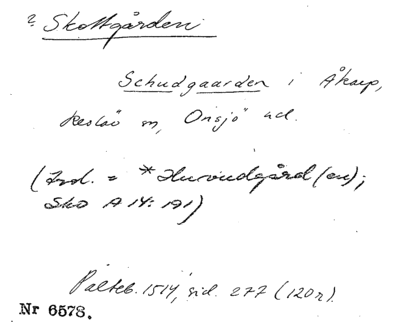 ? Skottgården
Schudgaarden i Åkarp,
Reslöv sn, Onsjö hd.
(Ind. = *Huvudgård(en);
Sko A 14: 191)
Palteb. 1514, sid. 277 (120r).
Nr 6578.